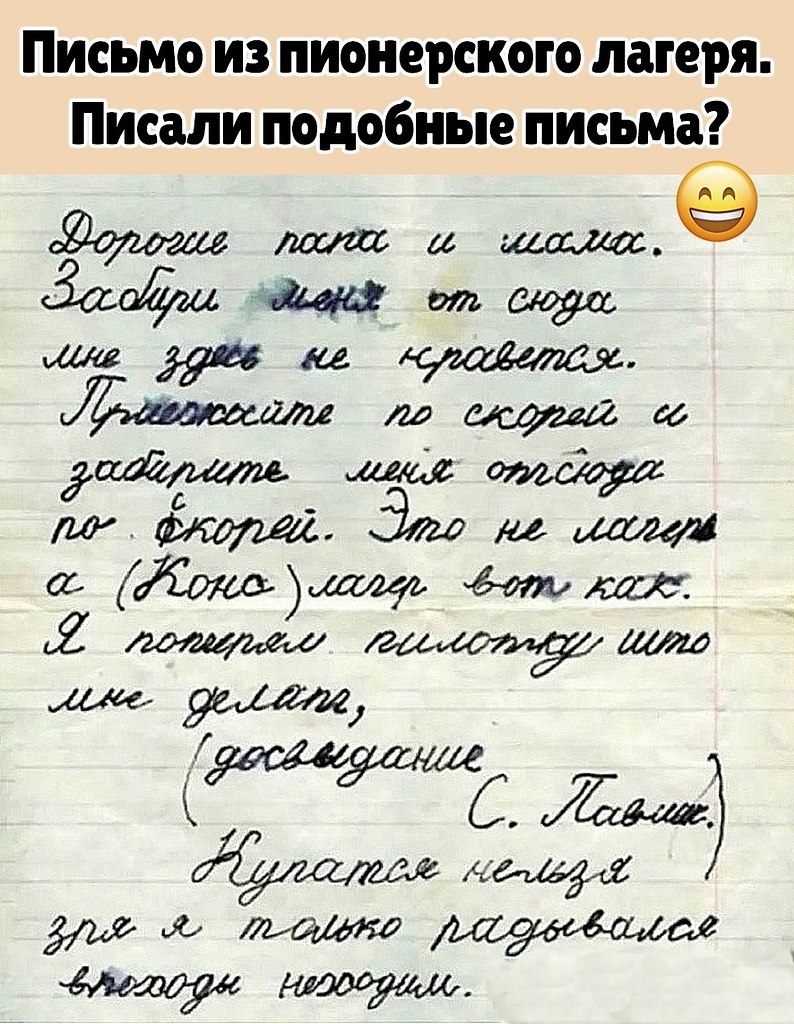 Письмо из пионерского лагеря.
Писали подобные письма?
Дорогие папа и мама.
Забири меня от сюда
мне здесь не нравется.
Приезжайте по скорей и
забирите меня отсюда
по скорей. Это не лагерь
а (Конс) лагер вот как.
Я потерял пилотку што
мне делать,
(досвыдание
С. Павлик.)
Купатся нельзя
зря я только радывался
впоходы неходим.